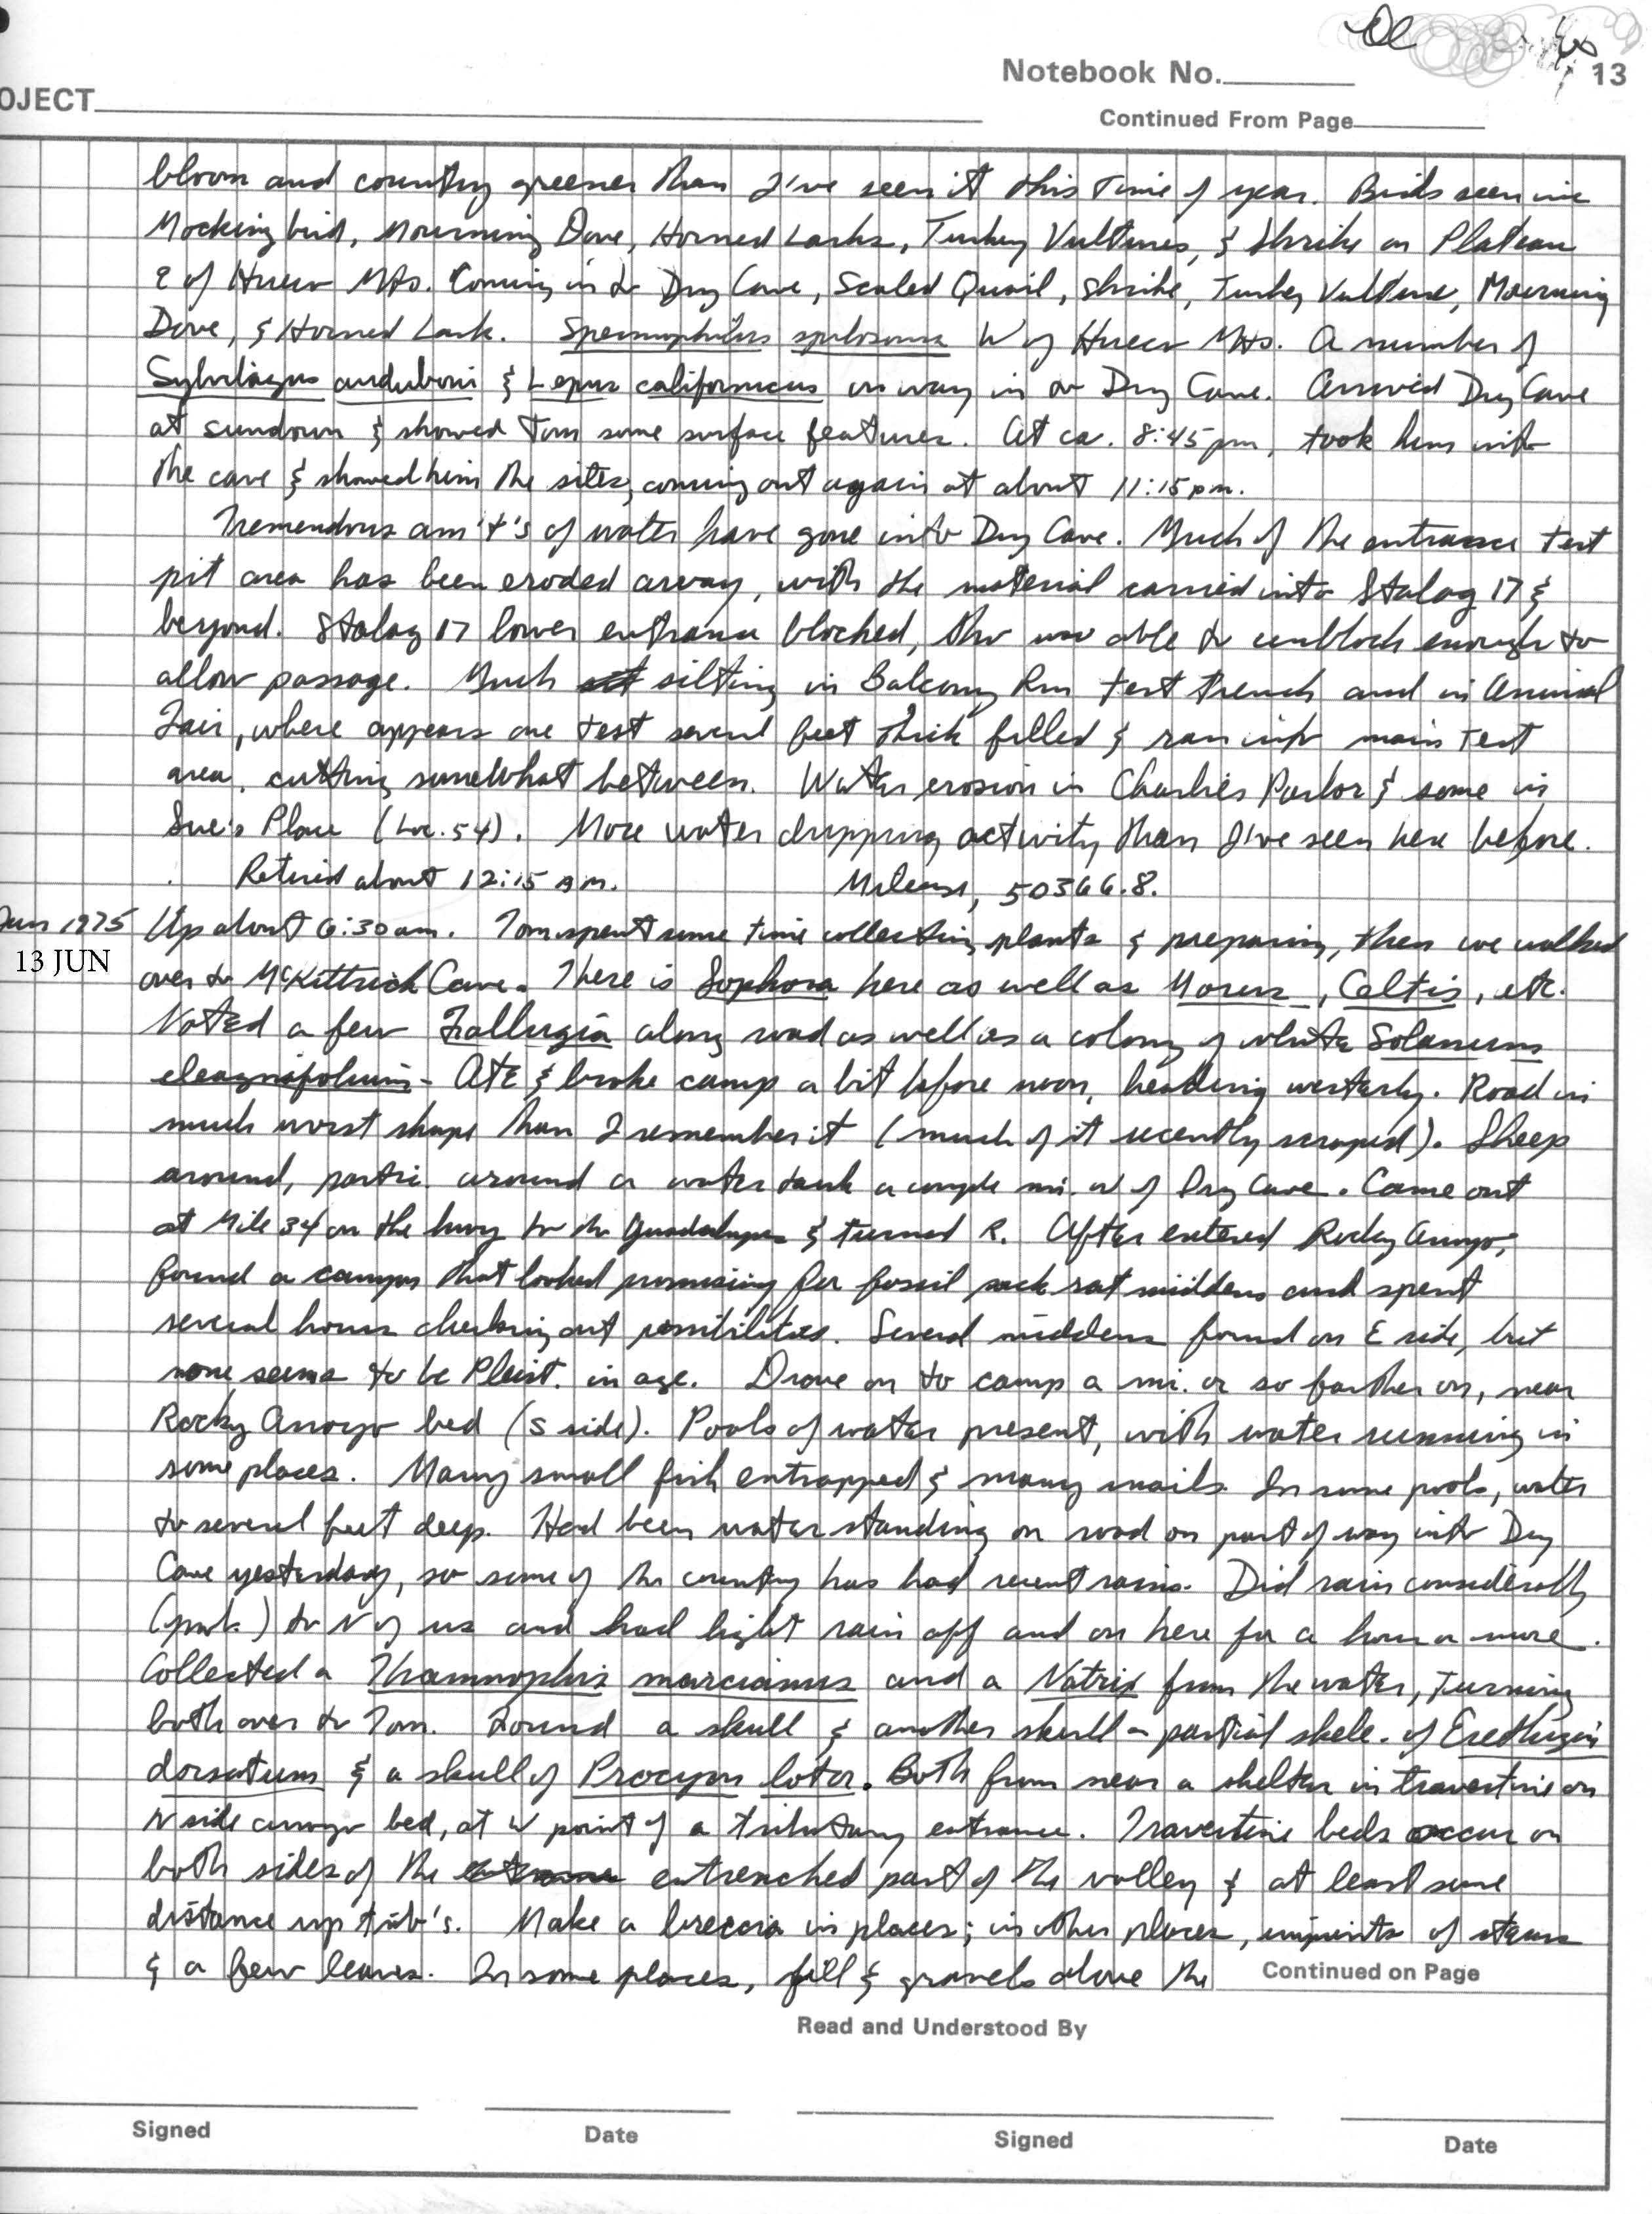 Notebook No.
13
OJECT
Continued From Page
bloom and country greener than I've seen it this time of year. Birds seen inc
Mockingbird, Mourning Dove, Horned Larks, Turkey Vultures, & Shrike on Plateau
E of Hueco Mts. Coming in to Dry Cave, Scaled Quail, Shrike, Turkey Vulture, Mourning
Dove, & Horned Lark. Spermophilus spilosoma W of Hueco Mts. A number of
Sylvilagus auduboni & Lepus californicus on way in to Dry Cave. Arrived Dry Cave
at sundown & showed Tom some surface features. At ca. 8:45 pm, took him into
the cave & showed him the sites, coming out again at about 11:15 pm.
Tremendous am't's of water have gone into Dry Cave. Much of the entrance test
pit area has been eroded away, with the material carried into Stalag 17 &
beyond. Stalag 17 lower entrance blocked, tho was able to unblock enough to
allow passage. Much silting in Balcony Rm test trench and in Animal
Fair, where appears one test several feet thick filled & ran into main test
area, cutting somewhat between. Water erosion in Charlies Parlor & some in
Sue's Place (Loc. 54). More water dripping activity than I've seen here before.
Retired about 12:15 am. Mileage, 50366.8.
Jun 1975 Up about 6:30 am. Tom spent some time collecting plants & preparing, then we walked
13 JUN
over to McKittrick Cave. There is Sophora here as well as Morus, Celtis, etc.
Noted a few Fallugia along road as well as a colony of white Solanum
eleagnifolium. Ate & broke camp a bit before noon, heading westerly. Road in
much worst shape than I remember it (much of it recently scraped). Sheep
around, partic. around a water tank a couple mi. W of Dry Cave. Came out
at Mile 34 on the hwy to the Guadalupes & turned R. After entered Rocky Arroyo,
found a canyon that looked promising for fossil pack rat middens and spent
several hours checking out possibilities. Several middens found on E side, but
none seems to be Pleist. in age. Drove on to camp a mi. or so farther on, near
Rocky Arroyo bed (S side). Pools of water present, with water running in
some places. Many small fish entrapped & many snails. In some pools, water
to several feet deep. Had been water standing on road on part of way into Dry
Cave yesterday, so some of the country has had recent rains. Did rain considerably
to N of us and had light rain off and on here for a hour or more.
Collected a Thamnophis marcianus and a Natrix from the water, turning
both over to Tom. Found a skull & another skull - partial skele. of Erethizon
dorsatum & a skull of Procyon lotor. Both from near a shelter in travertine on
N side arroyo bed, at W point of a tributary entrance. Travertine beds occur on
both sides of the entrenched part of the valley & at least some
distance up trib's. Make a breccia in places; in other places, imprints of stems
& a few leaves. In some places, fill & gravels above the
Continued on Page
Read and Understood By
Signed
Date
Signed
Date